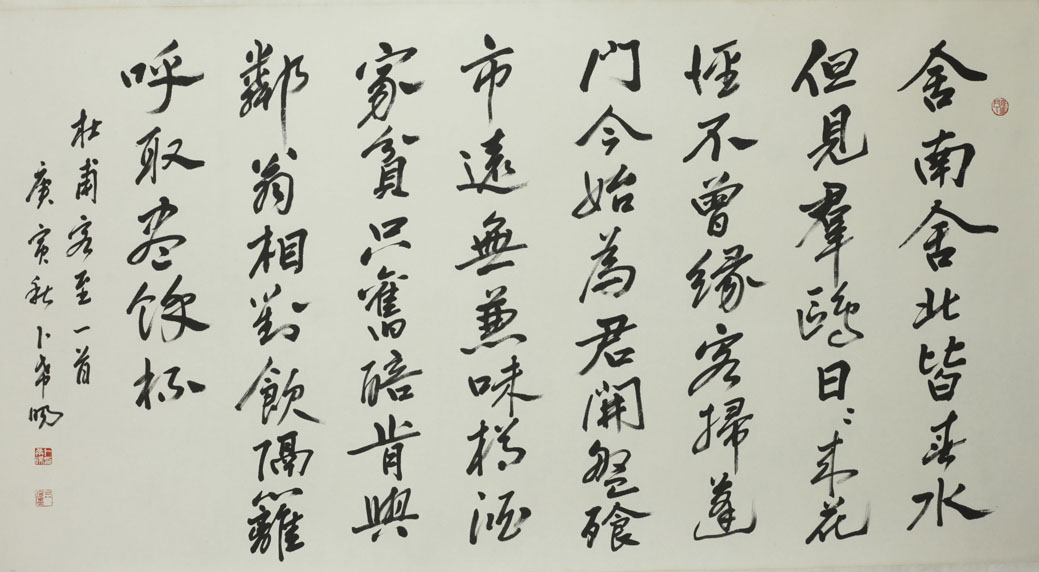 舍南舍北皆春水
但見羣鷗日〻来花
徑不曾緣客掃蓬
門今始為君開盤飧
市遠無兼味樽酒
家貧只舊醅肯與
鄰翁相對飲隔籬
呼取尽餘杯
杜甫客至一首
庚寅秋卜希暘